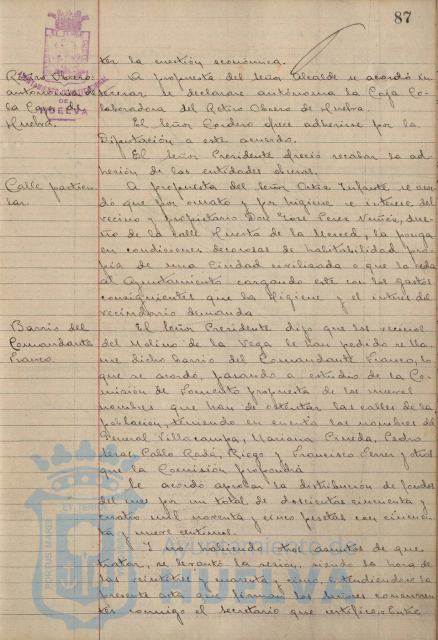 87
ter la cuestión económica.
Retiro Obrero:
autonomía de
la Caja de
Huelva.
A propuesta del Señor Alcalde se acordó in-
teresar se declarase autónoma la Caja Co-
laboradora del Retiro Obrero de Huelva.
El Señor Cordero ofrece adherirse por la
Diputación a este acuerdo.
El Señor Presidente ofreció recabar la ad-
hesión de las entidades obreras.
Calle particu-
lar.
A propuesta del Señor Ortiz Infante se acor-
dó que por ornato y por higiene se interese del
vecino y propietario Don José Perez Nuñez, due-
ño de la calle Huerta de la Merced, la ponga
en condiciones decorosas de habitabilidad pro-
pia de una Ciudad civilizada o que la ceda
al Ayuntamiento cargando este con los gastos
consiguientes que la Higiene y el interés del
vecindario demanda.
Barrio del
Comandante
Franco.
El Señor Presidente dijo que los vecinos
del Molino de la Vega le han pedido se lla-
me dicho barrio del Comandante Franco, lo
que se acordó, pasando a estudio de la Co-
misión de Fomento propuesta de los nuevos
nombres que han de ostentar las calles de la
población, teniendo en cuenta los nombres del
General Villacampa, Mariana Pineda, Pedro
Pablo Rada, Riego y Francisco Ferrer y otros
que la Comisión propondrá.
Se acordó aprobar la distribución de fondos
del mes por un total de doscientas cincuenta y
cuatro mil noventa y cinco pesetas con cincuen-
ta y nueve céntimos.
Y no habiendo otros asuntos de que
tratar, se levantó la sesión, siendo la hora de
las veintitres y cuarenta y cinco, extendiendose la
presente acta que firman los Señores concurren-
tes conmigo el Secretario que certifico.
HUELVA
PORTUS MARIS
ET TERRAE
Ayuntamiento de
HUELVA